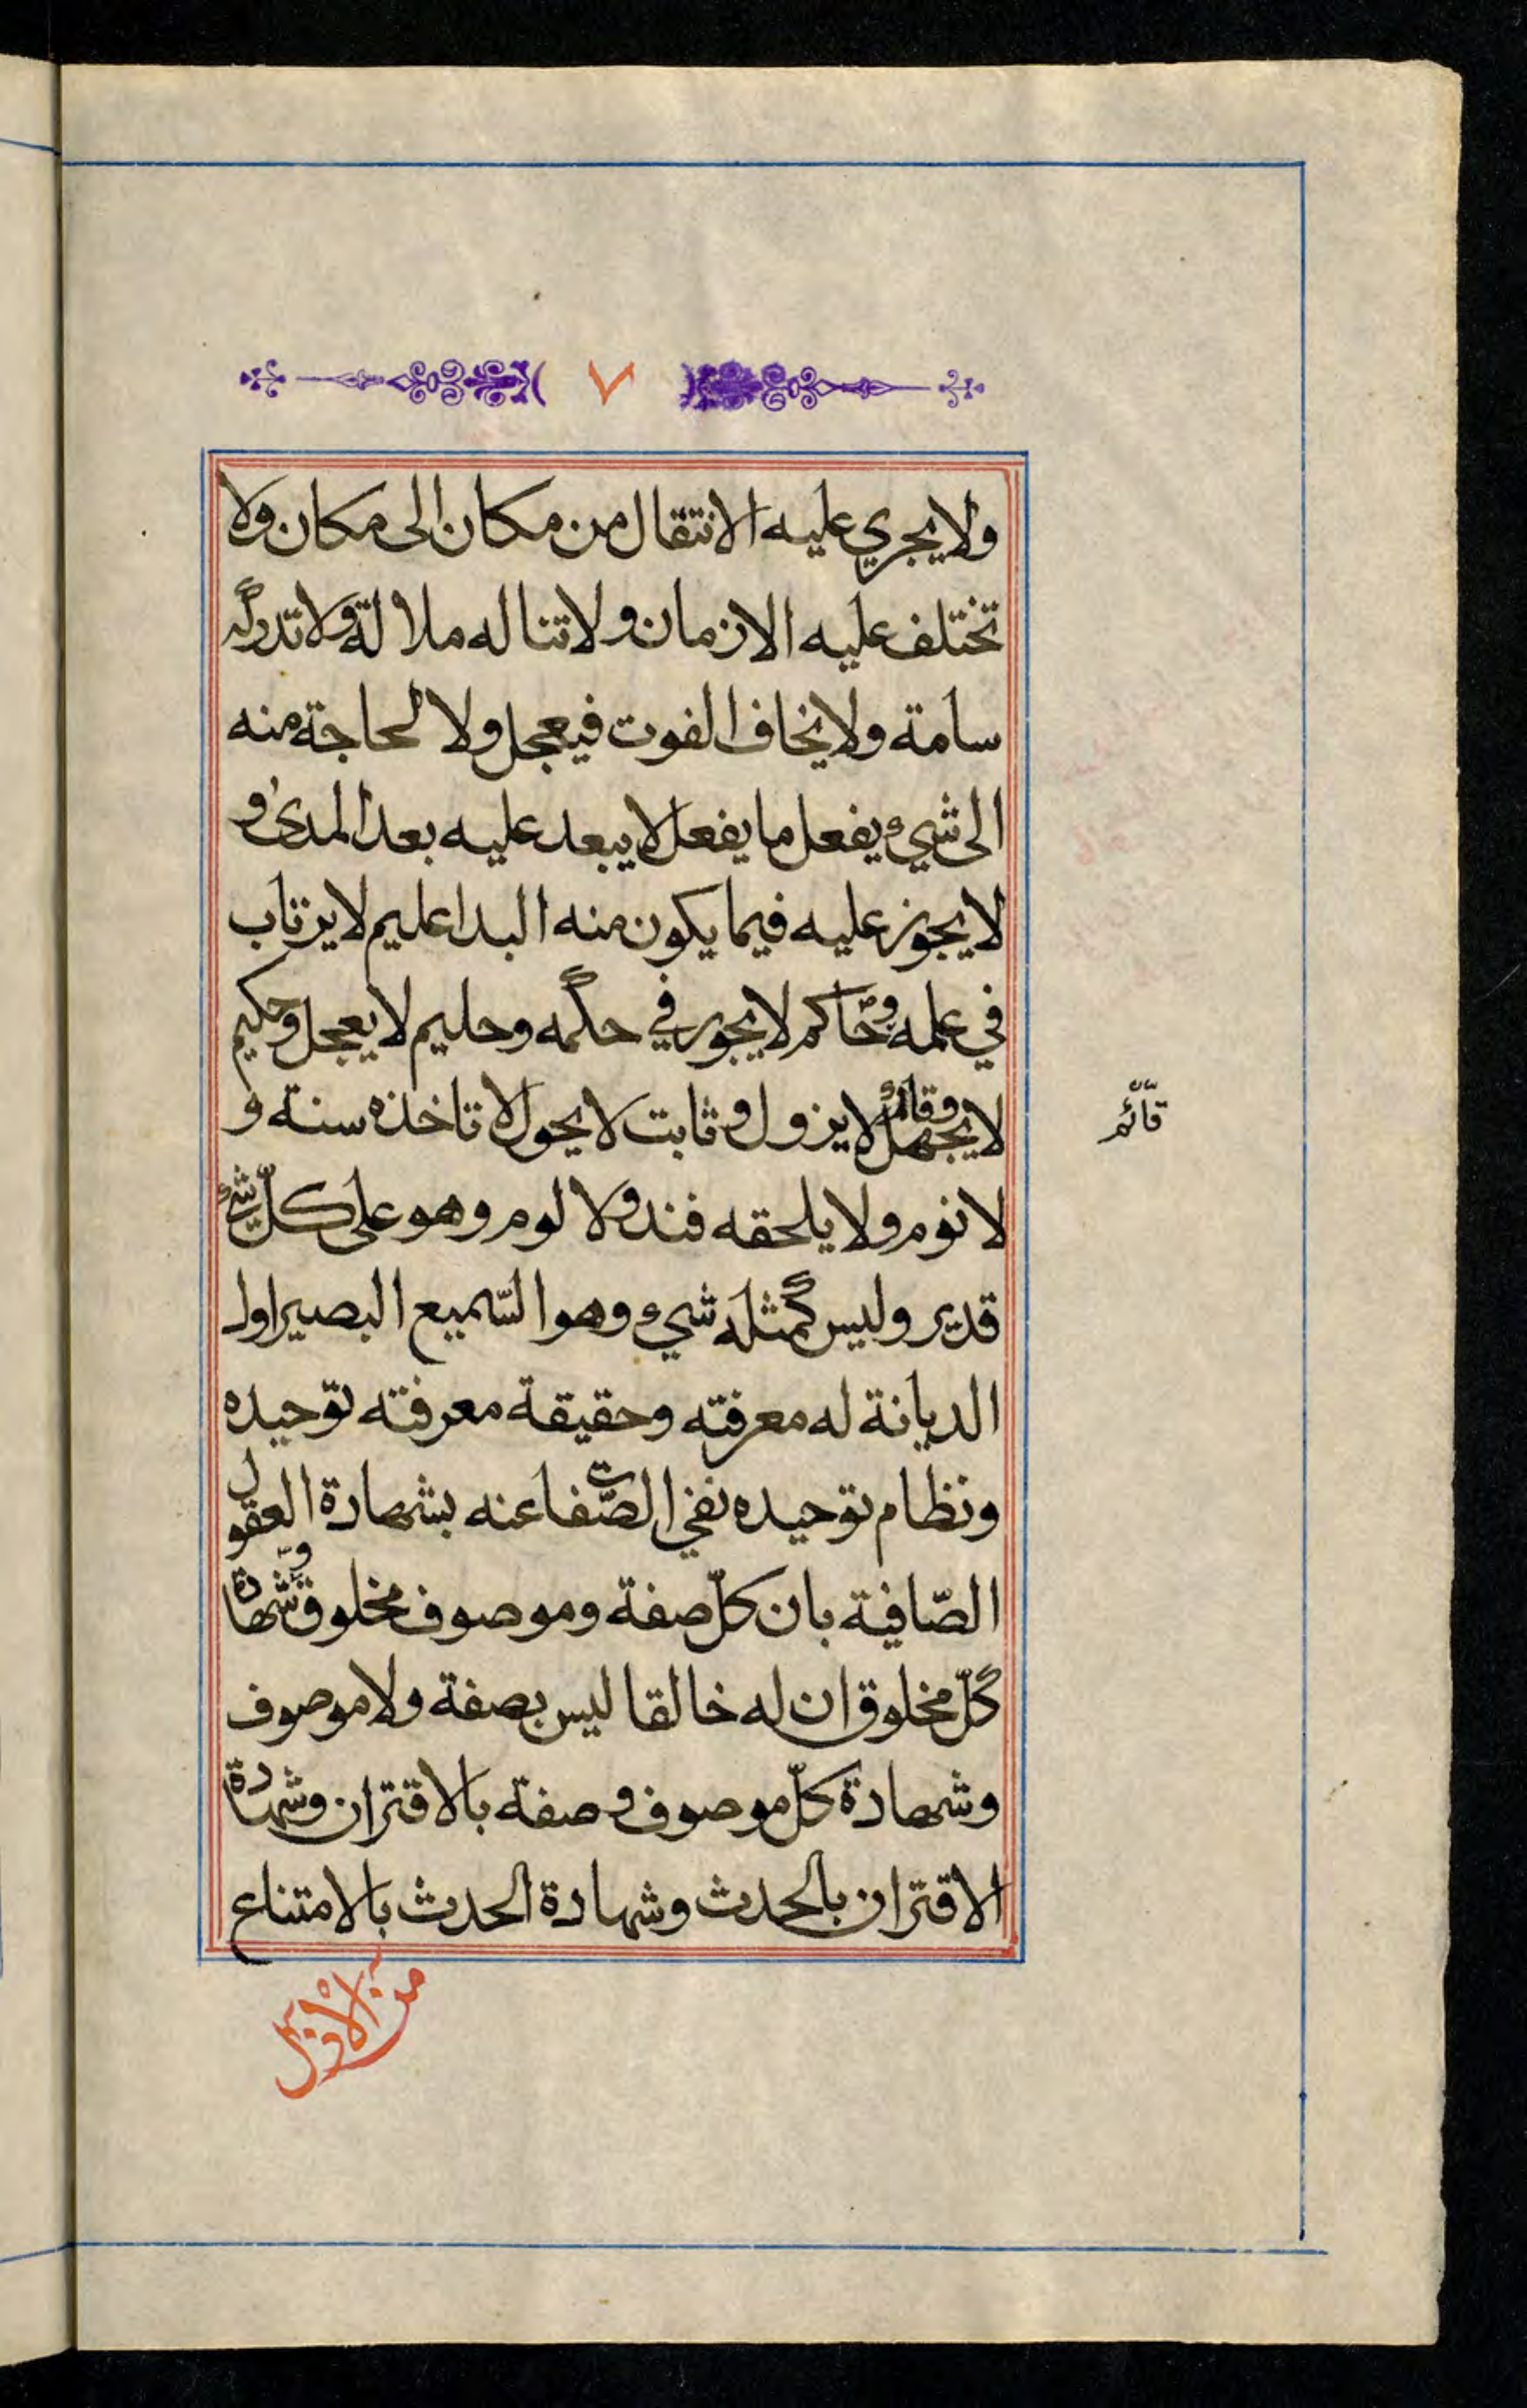 ٧
ولا يجري عليه الانتقال من مكان الى مكان ولا
تختلف عليه الازمان ولا تناله ملالة ولا تدركه
سامة ولا يخاف الفوت فيعجل ولا لحاجة منه
الى شيء يفعل ما يفعل لا يبعد عليه بعد المدى و
لا يجوز عليه فيما يكون منه البدا عليم لا يرتاب
في علمه وحاكم لا يجور في حكمه وحليم لا يعجل وحكيم
لا يجهل وقائم لا يزول وثابت لا يحول لا تاخذه سنة و
قائم
لا نوم ولا يلحقه فند ولا لوم وهو على كلّ شيء
قدير وليس كمثله شيء وهو السّميع البصير اول
الديانة له معرفته وحقيقة معرفته توحيده
ونظام توحيده نفي الصّفات عنه بشهادة العقول
الصّافية بان كلّ صفة وموصوف مخلوق وشهادة
كلّ مخلوق ان له خالقا ليس بصفة ولا موصوف
وشهادة كلّ موصوف وصفة بالاقتران وشهادة
الاقتران بالحدث وشهادة الحدث بالامتناع
من الأزل